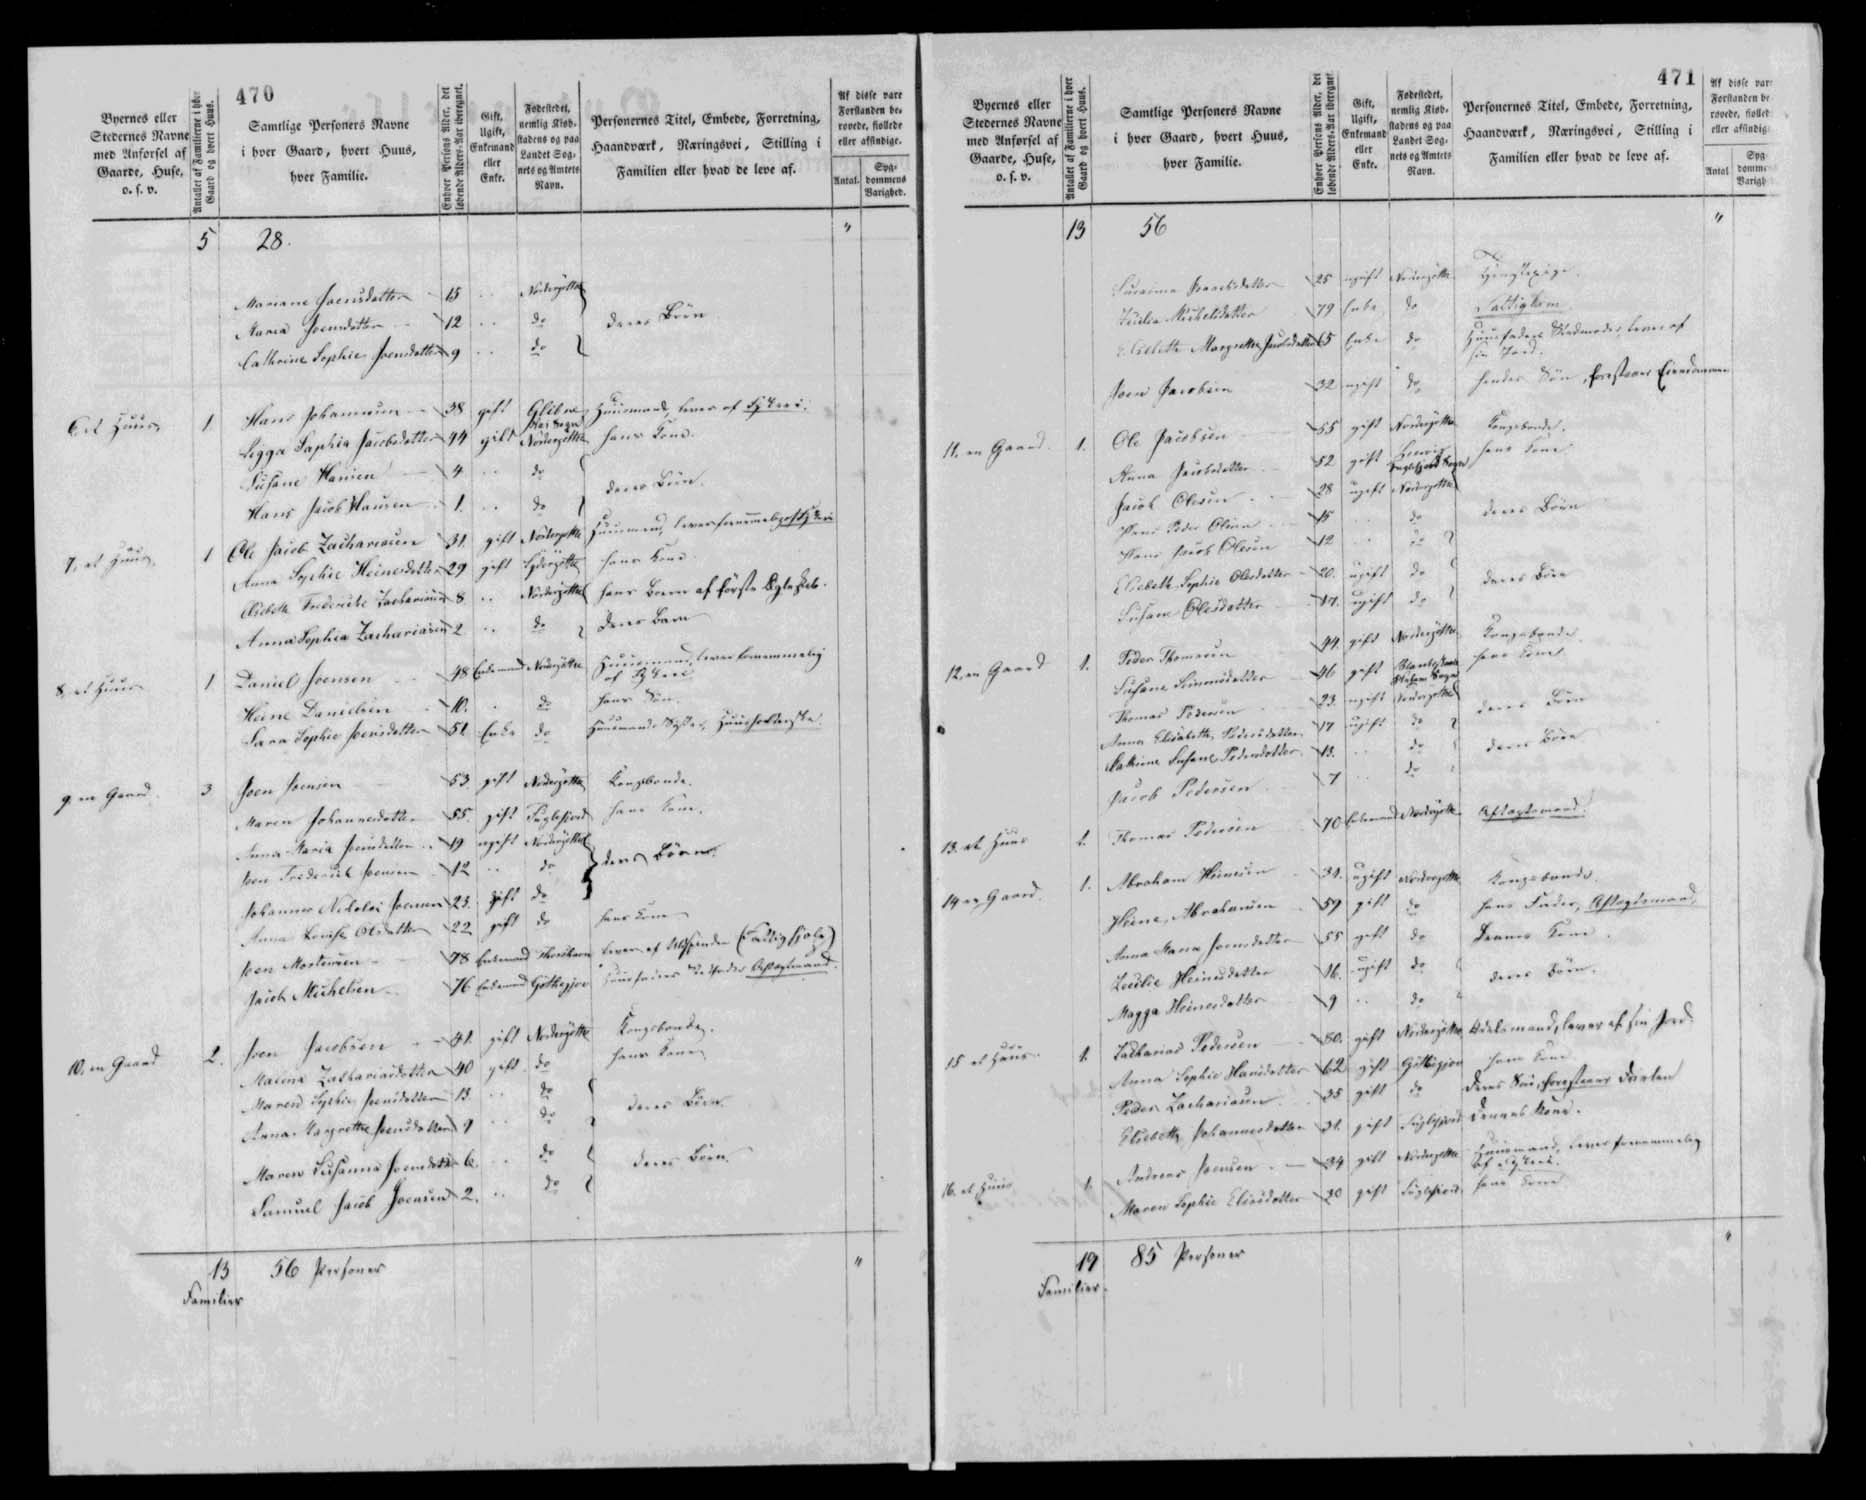 470
Byernes eller Stedernes Navne med Anførsel af Gaarde, Huse, o. s. v.
Antallet af Familierne i hver Gaard og hvert Huus.
Samtlige Personers Navne i hver Gaard, hvert Huus, hver Familie.
Enhver Persons Alder, det løbende Alders-Aar iberegnet.
Gift, Ugift, Enkemand eller Enke.
Fødestedet, nemlig Kjøbstadens og paa Landet Sognets og Amtets Navn.
Personernes Titel, Embede, Forretning, Haandværk, Næringsvei, Stilling i Familien eller hvad de leve af.
Af disse vare Forstanden berøvede, fjollede eller afsindige.
Antal. Sygdommens Varighed.
5 28. "
Mariane Joensdatter 15 .. Nordregøthe
Maria Joensdatter 12 .. do deres Børn
Cathrine Sophie Joensdatter 9 .. do
6. et Huus 1 Hans Johannesen 38 gift Huusmand, lever af Fiskeri.
Sophia Jacobsdatter 44 gift Nordregøthe hans Kone.
Susane Hansen 4 .. do
Hans Jacob Hansen 1. .. do deres Børn.
7. et Huus 1 Ole Jacob Zachariasen 31. gift Nordregøthe Huusmand, lever fornemmelig af Fiskeri
Anna Sophie Heinesdatter 29 gift hans Kone
Elsebeth Frederikke Zachariasen 8 .. Nordregøthe hans Barn af første Ægteskab.
Anna Sophia Zachariasen 2 .. do deres Barn
8. et Huus 1 Daniel Joensen 48 Enkemand Nordregøthe Huusmand, lever fornemmelig
af Fiskeri
Heine Danielsen 10. . do hans Søn.
Sara Sophie Joensdatter 51 Enke do Huusmands Søster, Huusholderske.
9. en Gaard. 3 Joen Joensen 53. gift Nordregøthe Kongsbonde.
Maren Johannesdatter 55. gift Fuglefjord hans Kone.
Anna Maria Joensdatter 19 ugift Nordregøthe
Joen Frederik Joensen 12 .. do deres Børn
Johannes Nicolai Joensen 23. gift do
Anna Lovise Olsdatter 22 gift do hans Kone
Joen Mortensen 78 Enkemand Thorshavn lever af (Fattighjælp)
Jacob Michelsen 76 Enkemand Gøthegjov Huusfaders Aftægtsmand.
10. en Gaard 2. Joen Jacobsen 41. gift Nordregøthe Kongsbonde.
Malena Zachariasdatter 40 gift do hans Kone
Maren Sophie Joensdatter 13. .. do
Anna Margrethe Joensdatter 9 .. do deres Børn.
Maren Susanna Joensdatter 6. .. do
Samuel Jacob Joensen 2. .. do deres Børn.
13 56 Personer "
Familier
471
Byernes eller Stedernes Navne med Anførsel af Gaarde, Huse, o. s. v.
Antallet af Familierne i hver Gaard og hvert Huus.
Samtlige Personers Navne i hver Gaard, hvert Huus, hver Familie.
Enhver Persons Alder, det løbende Alders-Aar iberegnet
Gift, Ugift, Enkemand eller Enke.
Fødestedet, nemlig Kjøbstadens og paa Landet Sognets og Amtets Navn.
Personernes Titel, Embede, Forretning, Haandværk, Næringsvei, Stilling i Familien eller hvad de leve af.
13 56 "
Isaachsdatter 25 ugift Nordregøthe Tjenstepige.
Michelsdatter 79 Enke do Fattiglem
Elsebeth Margrethe 65 Enke do Huusfaders lever af
sin Jord.
Joen Jacobsen 32 ugift do hendes Søn, forestaaer
11. en Gaard. 1. Ole Jacobsen 55 gift Nordregøthe Kongsbonde.
Anna Jacobsdatter 52 gift hans Kone
Jacob Olesen 28 ugift Nordregøthe
Peder Olesen 15 .. do deres Børn
Hans Jacob Olesen 12 .. do
Elsebeth Sophie Olesdatter 20. ugift do
Susane Olesdatter 17. ugift do deres Børn
12. en Gaard 1. Peder Thomasen 44. gift Nordregøthe Kongsbonde.
Susane Simonsdatter 46 gift hans Kone
Thomas Pedersen 23. ugift Nordregøthe
Anna Elisabeth Pedersdatter 17 ugift do deres Børn
Cathrine Susane Pedersdatter 13. .. do
Jacob Pedersen 7 .. do deres Børn
13. et Huus 1. Thomas Pedersen 70 Enkemand Nordregøthe Aftægtsmand.
14. en Gaard. 1. Abraham Heinesen 31. ugift Nordregøthe Kongsbonde.
Heine Abrahamsen 59 gift do hans Fader, Aftægtsmand,
Anna Maria Joensdatter 55 gift do Dennes Kone.
Cecilie Heinesdatter 16. ugift do
Magga Heinesdatter 9 .. do deres Børn.
15. et Huus 1. Zacharias Pedersen 80. gift Nordregøthe Odelsmand, lever af sin Jord.
Anna Sophie Hansdatter 62 gift Gøthegjov hans Kone
Peder Zachariasen 35 gift do deres Søn, forestaaer Driften
Elsebeth Johannesdatter 31. gift Fuglefjord Dennes Kone.
16. et Huus 1. Andreas Joensen 34 gift Nordregøthe Huusmand, lever fornemmelig
af Fiskeri.
Maren Sophie Eliasdatter 30 gift Fuglefjord hans Kone
19 85 Personer "
Familier.